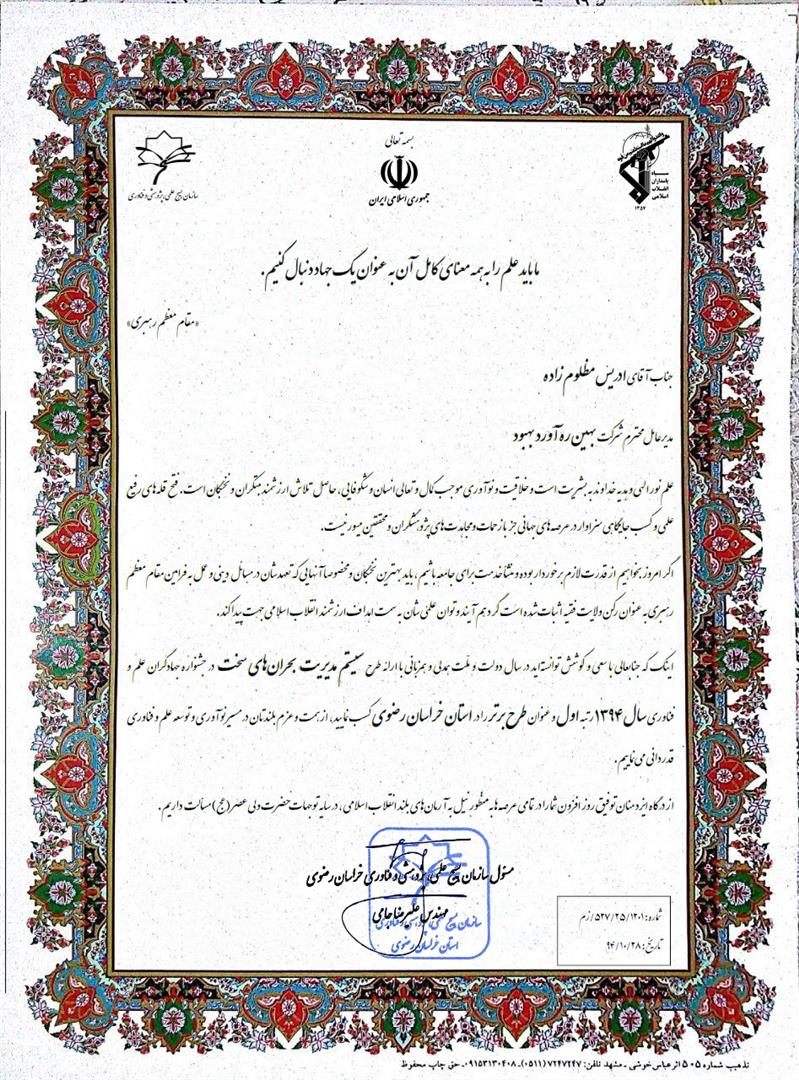 بسمه تعالی
جمهوری اسلامی ایران
سازمان بسیج علمی، پژوهشی و فناوری
سپاه
پاسداران
انقلاب
اسلامی
۱۳۵۷
ما باید علم را به همه معنای کامل آن به عنوان یک جهاد دنبال کنیم.
«مقام معظم رهبری»
جناب آقای ادریس مظلوم زاده
مدیرعامل محترم شرکت بهین ره آورد بهبود
علم نور الهی و هدیه خداوند به بشریت است و خلاقیت و نوآوری موجب کمال و تعالی انسان و شکوفایی، حاصل تلاش ارزشمند پژوهشگران و نخبگان است. فتح قله های رفیع
علمی و کسب جایگاهی سزاوار در عرصه های جهانی جز با زحمات و مجاهدت های پژوهشگران و محققین میسور نیست.
اگر امروز بخواهیم از قدرت لازم برخوردار بوده و منشأ خدمت برای جامعه باشیم، باید بهترین نخبگان و مخصوصا آنهایی که تعهدشان در مسائل دینی و عمل به فرامین مقام معظم
رهبری به عنوان رکن ولایت فقیه اثبات شده است گرد هم آیند و توان علمی شان به سمت اهداف ارزشمند انقلاب اسلامی جهت پیدا کند.
اینک که جنابعالی با سعی و کوشش توانسته اید در سال دولت و ملت همدلی و همزبانی با ارائه طرح سیستم مدیریت بحران های سخت در جشنواره جهادگران علم و
فناوری سال ۱۳۹۴ رتبه اول و عنوان طرح برتر را در استان خراسان رضوی کسب نمایید، از همت و عزم بلندتان در مسیر نوآوری و توسعه علم و فناوری
قدردانی می نماییم.
از درگاه ایزد منان توفیق روز افزون شما را در تمامی عرصه ها به منظور نیل به آرمان های بلند انقلاب اسلامی، در سایه توجهات حضرت ولی عصر (عج) مسألت داریم.
مسئول سازمان بسیج علمی، پژوهشی و فناوری خراسان رضوی
مهندس علیرضا جامی
سازمان بسیج علمی، پژوهشی و فناوری
استان خراسان رضوی
شماره: ۵۲۷/۲۵/۱۲۰۱/زم
تاریخ: ۹۴/۱۰/۲۸
تذهیب شماره ۵۰۵ اثر عباس خوشی - مشهد تلفن: ۷۲۴۷۲۴۷ (۰۵۱۱)-۰۹۱۵۳۱۳۰۴۰۸ حق چاپ محفوظ